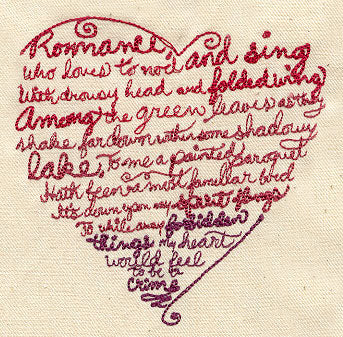 Romance,
who loves to nod and sing
With drowsy head and folded wing
Among the green leaves as they
shake far down within some shadowy
lake, To me a painted paroquet
Hath been a most familiar bird
It's down upon my spirit flings
To while away forbidden
things my heart
would feel
to be a
crime